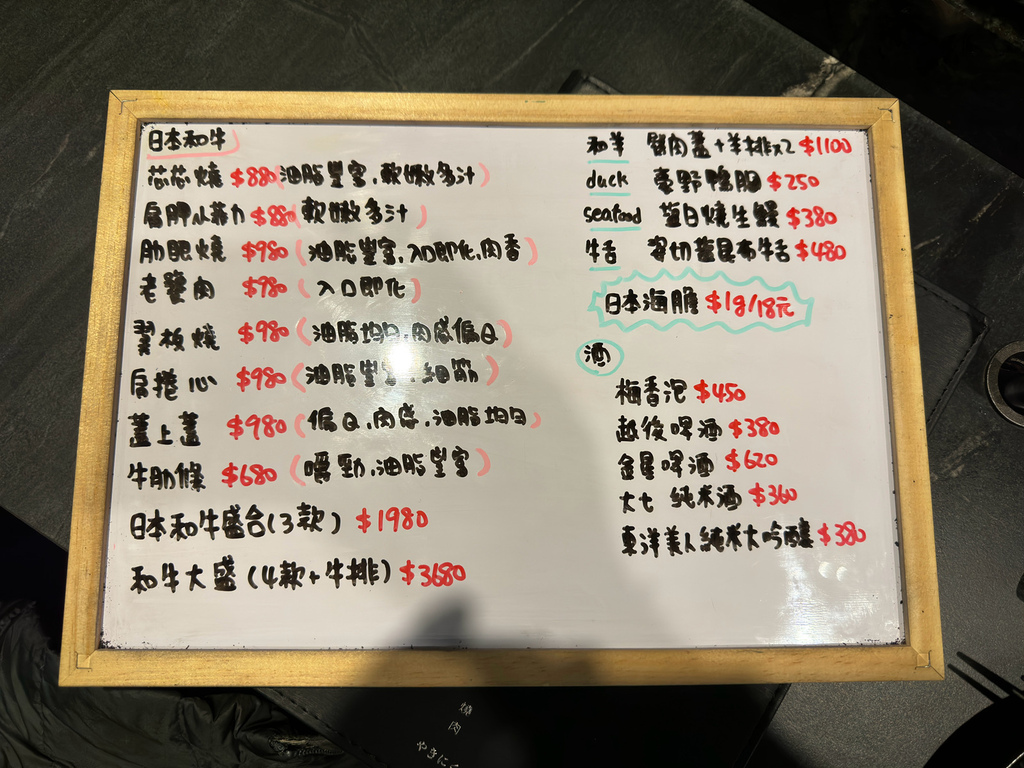 日本和牛
芯芯燒 $880(油脂豐富,軟嫩多汁)
肩胛 菲力 $880(軟嫩多汁)
肋眼燒 $980(油脂豐富,入口即化,肉香)
老饕肉 $980(入口即化)
翼板燒 $980(油脂均勻,肉感偏Q)
肩捲心 $980(油脂豐富,細筋)
蓋上蓋 $980(偏Q,肉感,油脂均勻)
牛肋條 $680(嚼勁,油脂豐富)
日本和牛盛合(3款) $1980
和牛大盛(4款+牛排) $3680
和羊 肉蓋+羊排x2 $1100
duck 鴨胸 $250
seafood 蒲燒生鰻 $380
牛舌 厚切 昆布牛舌 $480
日本海膽 $1g/18元
酒
梅香泡 $450
越後啤酒 $380
金星啤酒 $620
大七 純米酒 $360
東洋美人純米大吟釀 $380
燒肉
やきにく